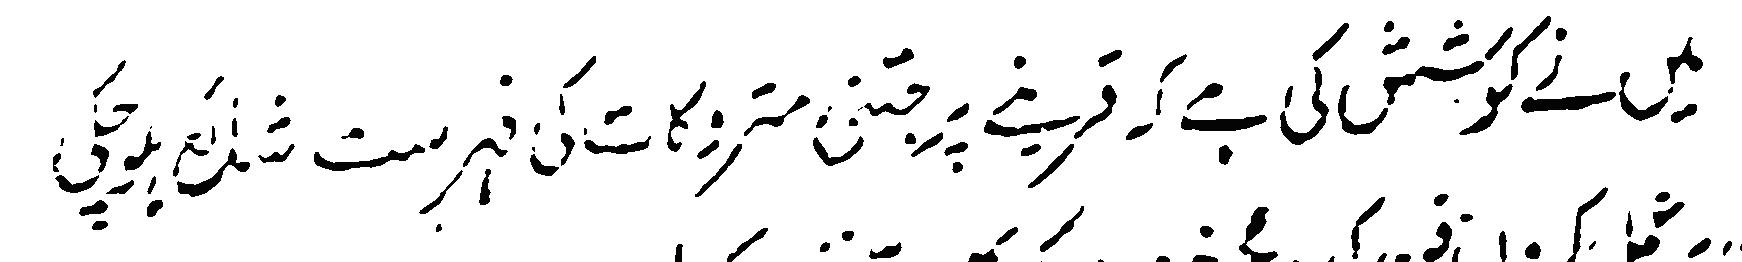 میں نے کوشش کی ہے کہ قرینے پر جتنی متروکات کی فہرست شائع ہو چکی